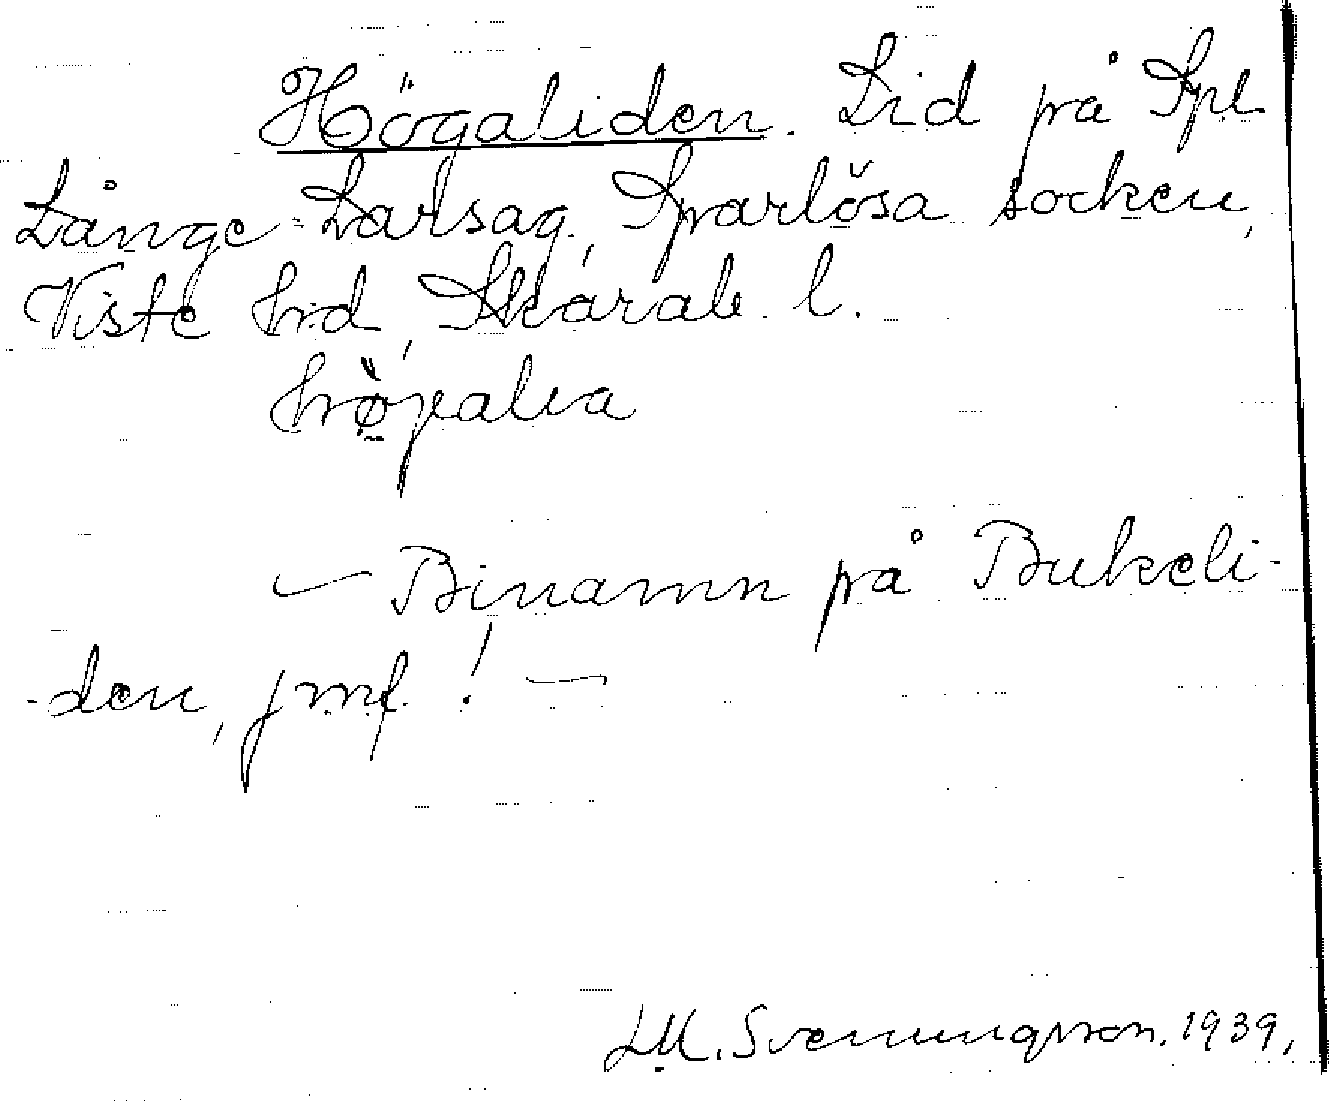 Högaliden. Lid på Spl
Långe-Larsag, Sparlösa socken,
Viste hrd, Skarab. l.
hø̀galia
— Binamn på Bukeli-
-den, jmf! —
LM. Svenungsson. 1939.